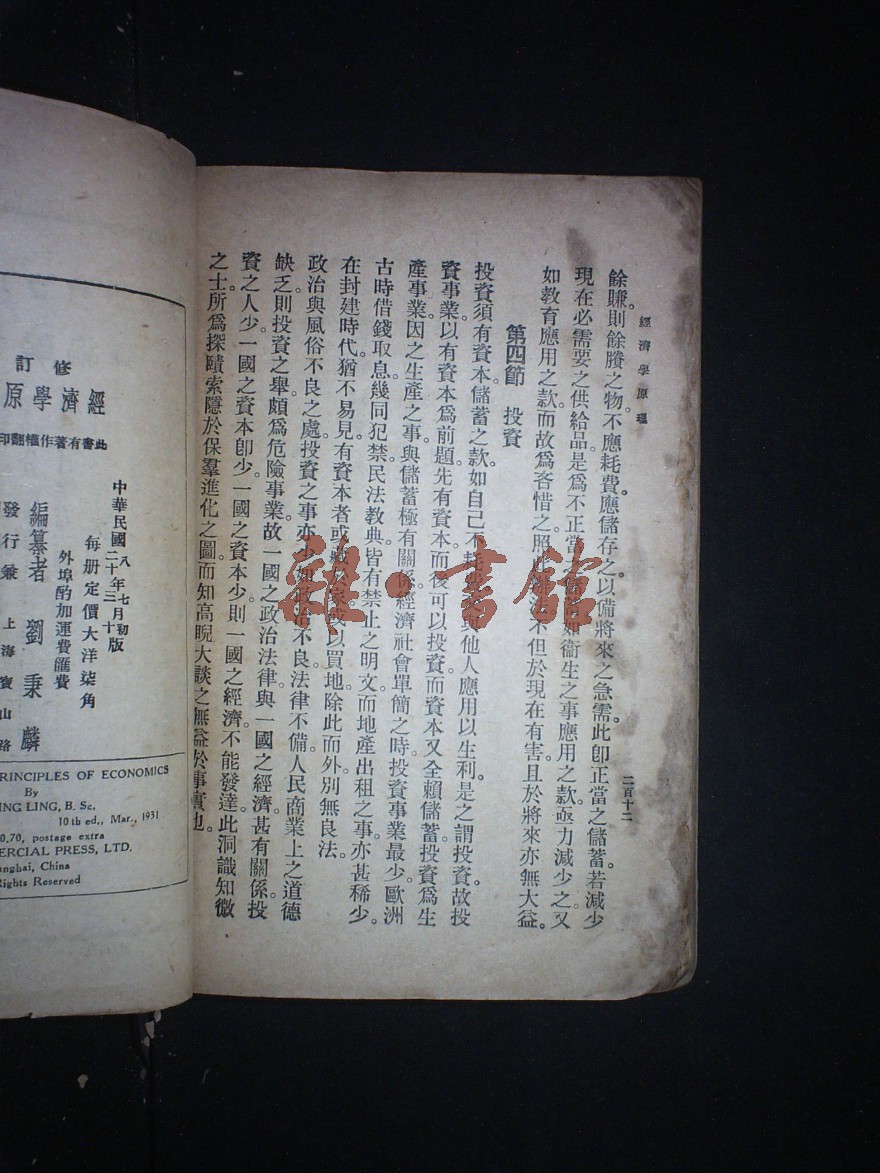 經濟學原理
二百十二
餘賺則餘賸之物不應耗費應儲存之以備將來之急需此卽正當之儲蓄若減少
現在必需要之供給品是爲不正當之 如衞生之事應用之款亟力減少之又
如教育應用之款而故爲吝惜之照 不但於現在有害且於將來亦無大益。
第四節 投資
投資須有資本儲蓄之款如自己不 他人應用以生利是之謂投資故投
資事業以有資本爲前題先有資本而後可以投資而資本又全賴儲蓄投資爲生
產事業因之生產之事與儲蓄極有關係經濟社會單簡之時投資事業最少歐洲
古時借錢取息幾同犯禁民法教典皆有禁止之明文而地產出租之事亦甚稀少。
在封建時代猶不易見有資本者或藏於家或以買地除此而外別無良法。
政治與風俗不良之處投資之事亦少如政治不良法律不備人民商業上之道德
缺乏則投資之舉頗爲危險事業故一國之政治法律與一國之經濟甚有關係投
資之人少一國之資本卽少一國之資本少則一國之經濟不能發達此洞識知微
之士所爲探賾索隱於保羣進化之圖而知高睨大談之無益於事實也。
雜書館
修訂
經濟學原
此書有著作權翻印
中華民國八年七月初版
二十年三 十
每册定價大洋柒角
外埠酌加運費匯費
編纂者 劉秉麟
發行兼 上海寶山路
RINCIPLES OF ECONOMICS
By
ING LING, B. Sc.
10th ed., Mar., 1931
0.70, postage extra
ERCIAL PRESS, LTD.
anghai, China
Rights Reserved